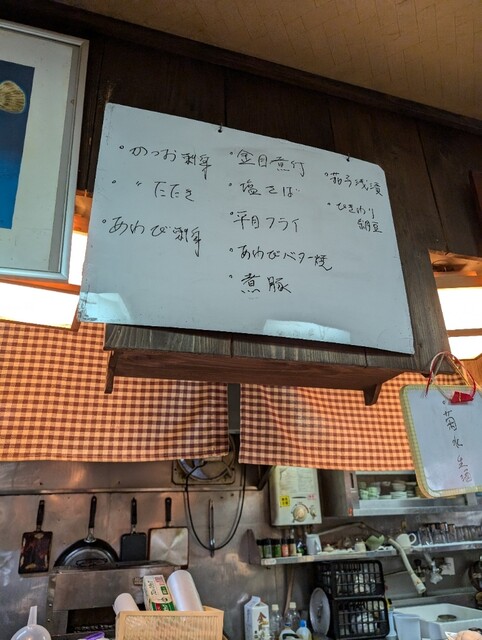 ・かつお刺身
・〃 たたき
・あわび刺身
・金目煮付
・塩さば
・平目フライ
・あわびバター焼
・煮豚
・茄子浅漬
・ひきわり
納豆
・菊水 生酒